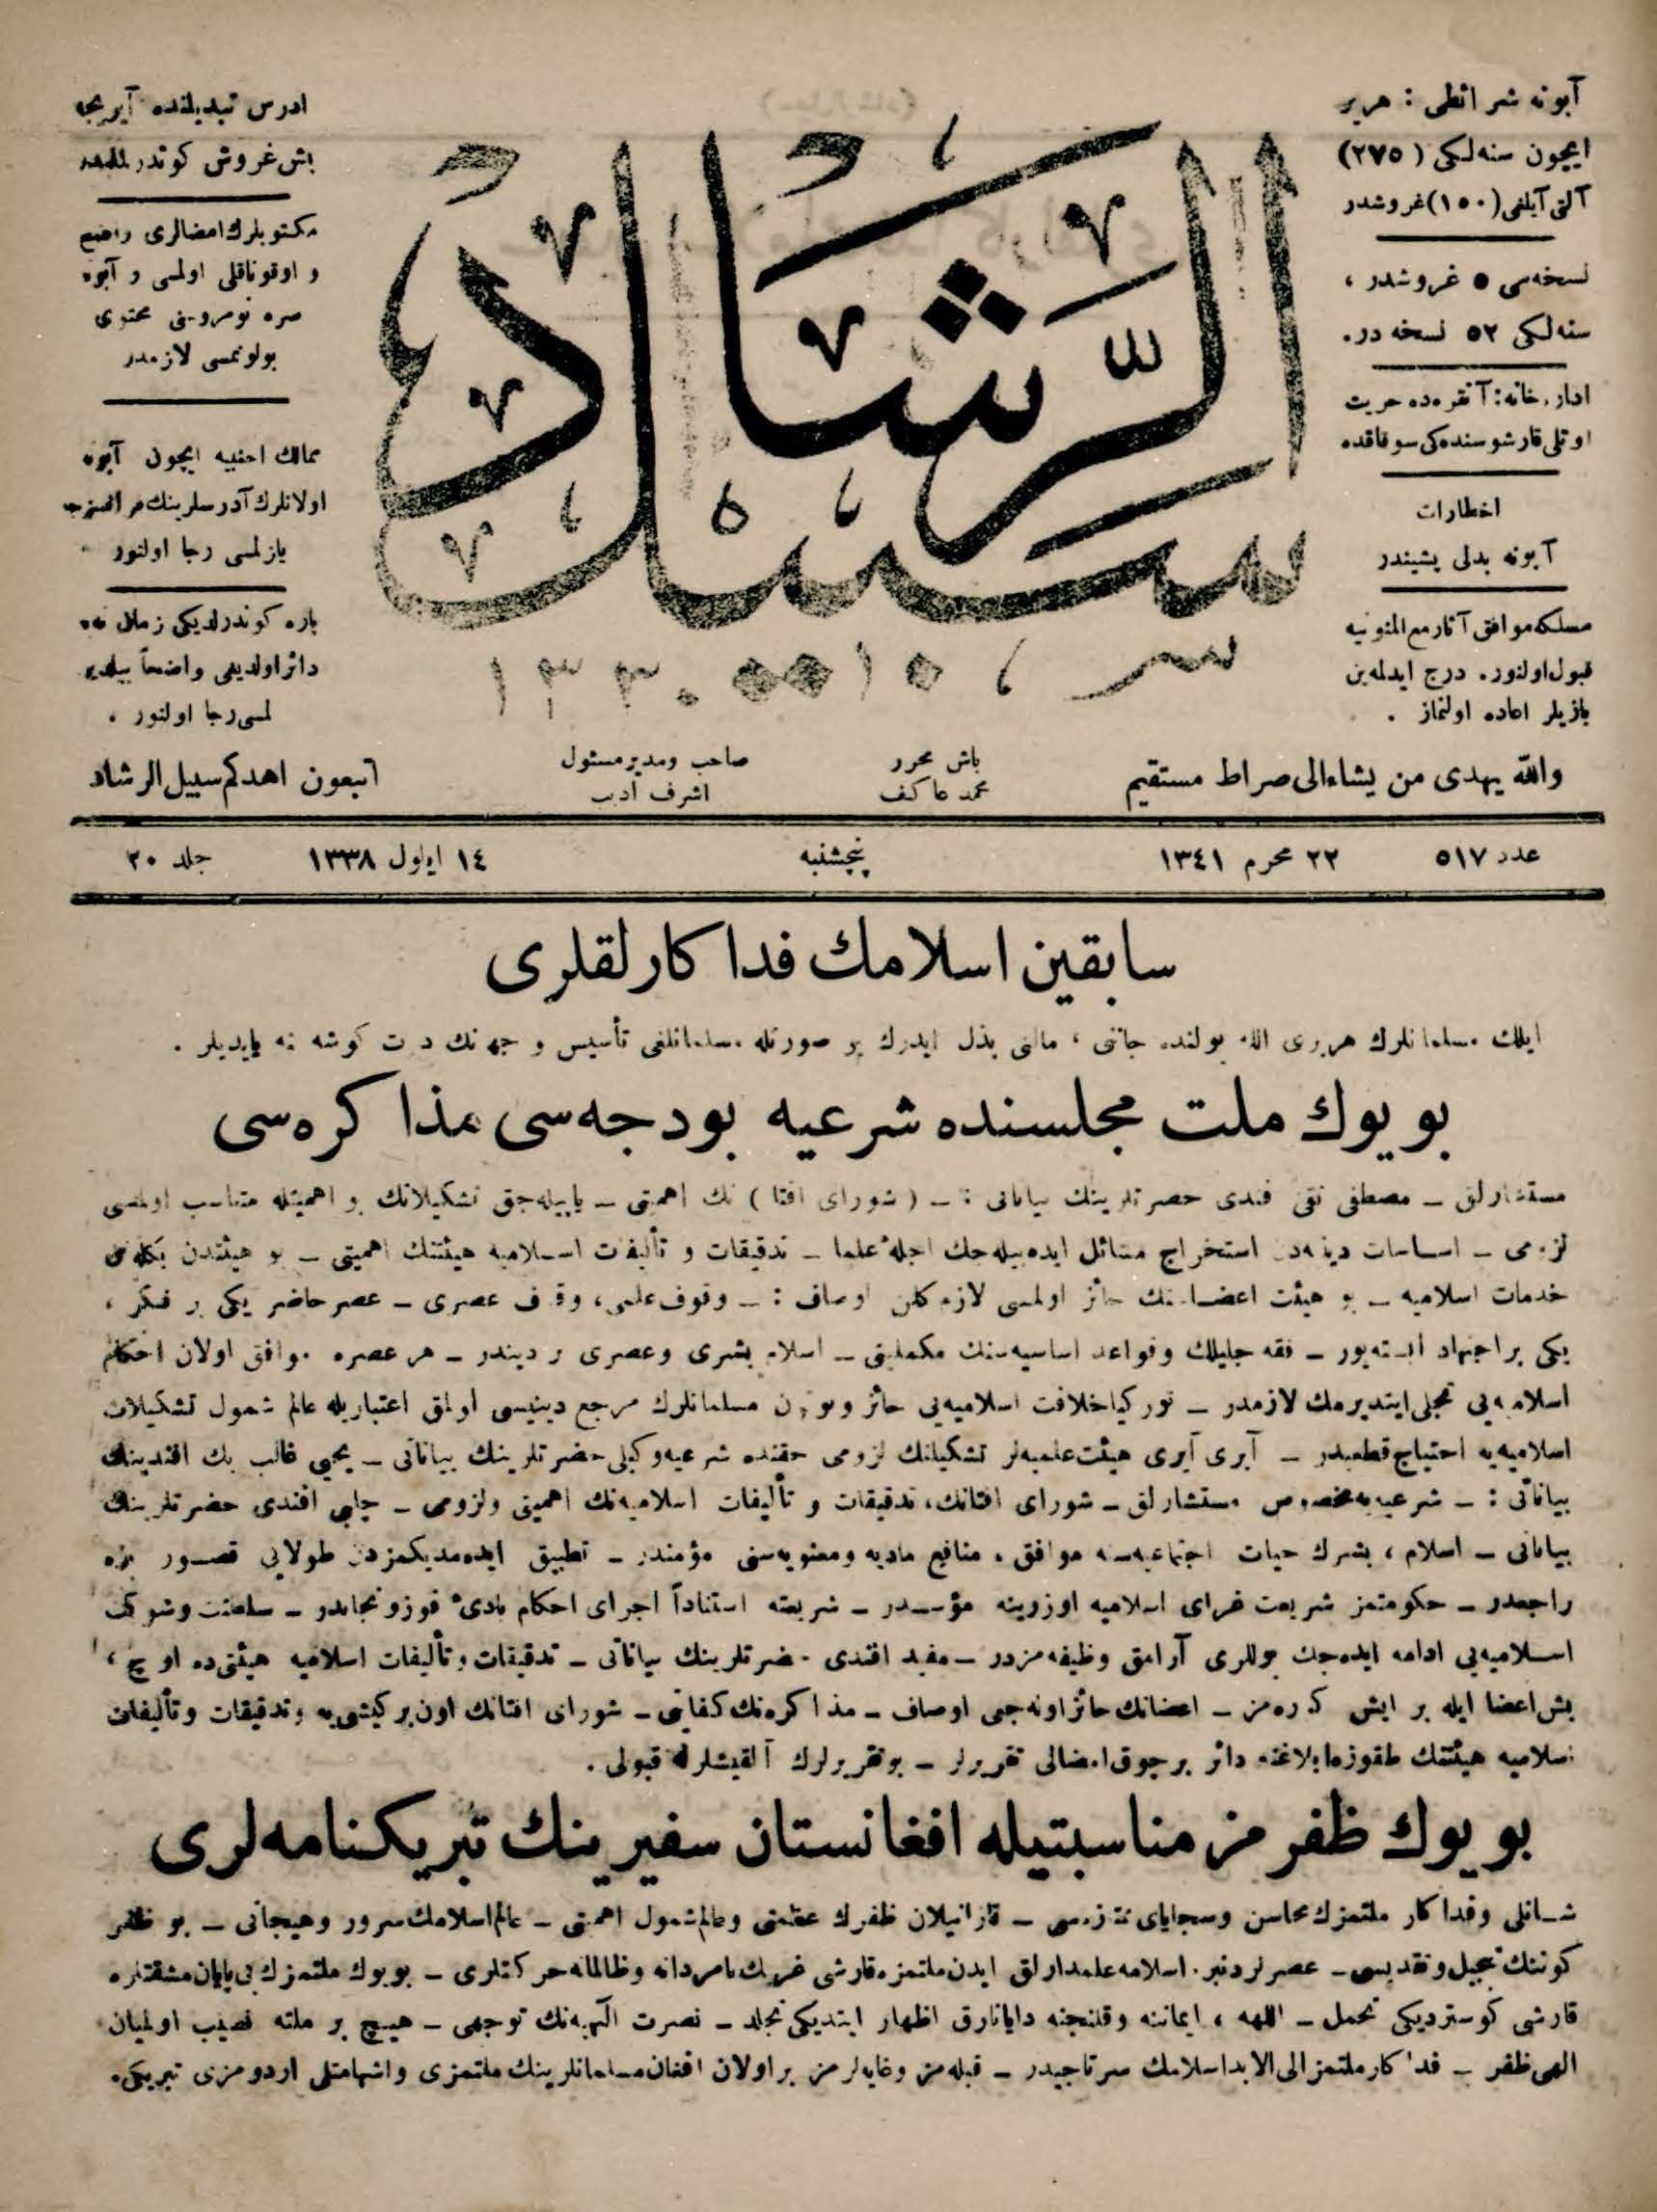 آبونه شرائطی : هر یر
ایچون سنه‌لکی (۲۷۵)
آلتی آیلغی (۱۵۰) غروشدر
نسخه‌سی ۵ غروشدر ،
سنه‌لکی ۵۲ نسخه در.
اداره خانه : آنقره‌ده حریت
اوتلی قارشوسنده‌کی سوقاقده
اخطارات
آبونه بدلی پشیندر
مسلکه موافق آثار مع المنونیه
قبول اولنور. درج ایدلمه‌ین
یازیلر اعاده اولنماز .
سبیل الرشاد
ادرس تبدیلنده آیریجه
بش غروش کوندرلملیدر
مکتوبلرك امضالری واضح
و اوقوناقلی اولمسی و آبونه
صره نومروسنی محتوی
بولونمسی لازمدر
ممالك اجنبیه ایچون آبونه
اولانلرك آدرسلرینك فرانسزجه
یازلمسی رجا اولنور
پاره کوندرلدیکی زمان نه‌یه
دائر اولدیغی واضحاً بیلدیر
لمسی رجا اولنور .
والله یهدی من یشاء الی صراط مستقیم
باش محرر
محمد عاکف
صاحب ومدیر مسئول
اشرف ادیب
اتبعون اهدکم سبیل الرشاد
عدد ۵۱۷
۲۲ محرم ۱۳٤۱
پنچشنبه
۱٤ ایلول ۱۳۳۸
جلد ۲۰
سابقین اسلامك فداکارلقلری
ایلك مسلمانلرك هربری الله یولنده جاننی ، مالنی بذل ایدرك بر صورتله مسلمانلغی تأسیس و جهانك درت کوشه‌سنه یایدیلر .
بویوك ملت مجلسنده شرعیه بودجه‌سی مذاکره‌سی
مستشارلق ـ مصطفی تقی فندی حضرتلرینك بیاناتی : ـ ( شورای افتا ) نك اهمیتی ـ یاپیله‌جق تشکیلاتك بو اهمیتله متناسب اولمسی
لزومی ـ اساسات دینیه‌دن استخراج مسائل ایده‌بیله‌جك اجلهٔ علما ـ تدقیقات و تألیفات اسلامیه هیئتنك اهمیتی ـ بو هیئتدن بکله‌نن
خدمات اسلامیه ـ بو هیئت اعضاسنك حائز اولمسی لازم‌کلن اوصاف : ـ وقوف علمی، وقوف عصری ـ عصر حاضر یکی بر فکر ،
یکی بر اجتهاد ایسته‌یور ـ فقه جلیلك وقواعد اساسیه‌سنك مکملیتی ـ اسلام بشری وعصری بر دیندر ـ هر عصره موافق اولان احکام
اسلامیه‌یی تجلی ایتدیرمك لازمدر ـ تورکیا خلافت اسلامیه‌یی حائز وبوتون مسلمانلرك مرجع دینیسی اولمق اعتباریله عالم شمول تشکیلات
اسلامیه‌یه احتیاج قطعیدر ـ آیری آیری هیئت علمیه‌لر تشکیلنك لزومی حقنده شرعیه وکیلی حضرتلرینك بیاناتی ـ یحیی غالب بك افندینك
بیاناتی : ـ شرعیه‌یه مخصوص مستشارلق ـ شورای افتانك، تدقیقات و تألیفات اسلامیه‌نك اهمیتی ولزومی ـ چلبی افندی حضرتلرینك
بیاناتی ـ اسلام ، بشرك حیات اجتماعیه‌سنه موافق ، منافع مادیه ومعنویه‌سنی مؤمندر ـ تطبیق ایده‌مدیکمزدن طولایی قصور بزه
راجعدر ـ حکومتمز شریعت غرای اسلامیه اوزرینه مؤسسدر ـ شریعته استناداً اجرای احکام بادیٔ فوز ونجاتدر ـ سلطنت وشوکت
اسلامیه‌یی ادامه ایده‌جك یوللری آرامق وظیفه‌مزدر ـ مفید افندی حضرتلرینك بیاناتی ـ تدقیقات وتألیفات اسلامیه هیئتی‌ده اوچ ،
بش اعضا ایله بر ایش کوره‌مز ـ اعضانك حائز اوله‌جغی اوصاف ـ مذاکره‌نك کفایتی ـ شورای افتانك اون بر کیشی‌یه وتدقیقات وتألیفات
اسلامیه هیئتنك طقوزه ابلاغنه دائر برچوق امضالی تقریرلر ـ بو تقریرلرك آلقیشلرله قبولی .
بویوك ظفرمز مناسبتیله افغانستان سفیرینك تبریکنامه‌لری
شانلی وفداکار ملتمزك محاسن وسجایای ممتازه‌سی ـ قازانیلان ظفرك عظمتی وعالم‌شمول اهمیتی ـ عالم اسلامك سرور وهیجانی ـ بو ظفر
کوننك تبجیل وتقدیسی ـ عصرلردنبری اسلامه علمدارلق ایدن ملتمزه قارشی غربك نامردانه وظالمانه حرکتلری ـ بویوك ملتمزك بی‌پایان مشقتلره
قارشی کوستردیکی تحمل ـ اللهه ، ایماننه وقلنجنه دایانارق اظهار ایتدیکی تجلد ـ نصرت الهیه‌نك توجهی ـ هیچ بر ملته نصیب اولمیان
الهی ظفر ـ فداکار ملتمز الی الابد اسلامك سرتاجیدر ـ قبله‌مز وغایه‌لرمز بر اولان افغان مسلمانلرینك ملتمزی وشهامتلی اردومزی تبریکی.